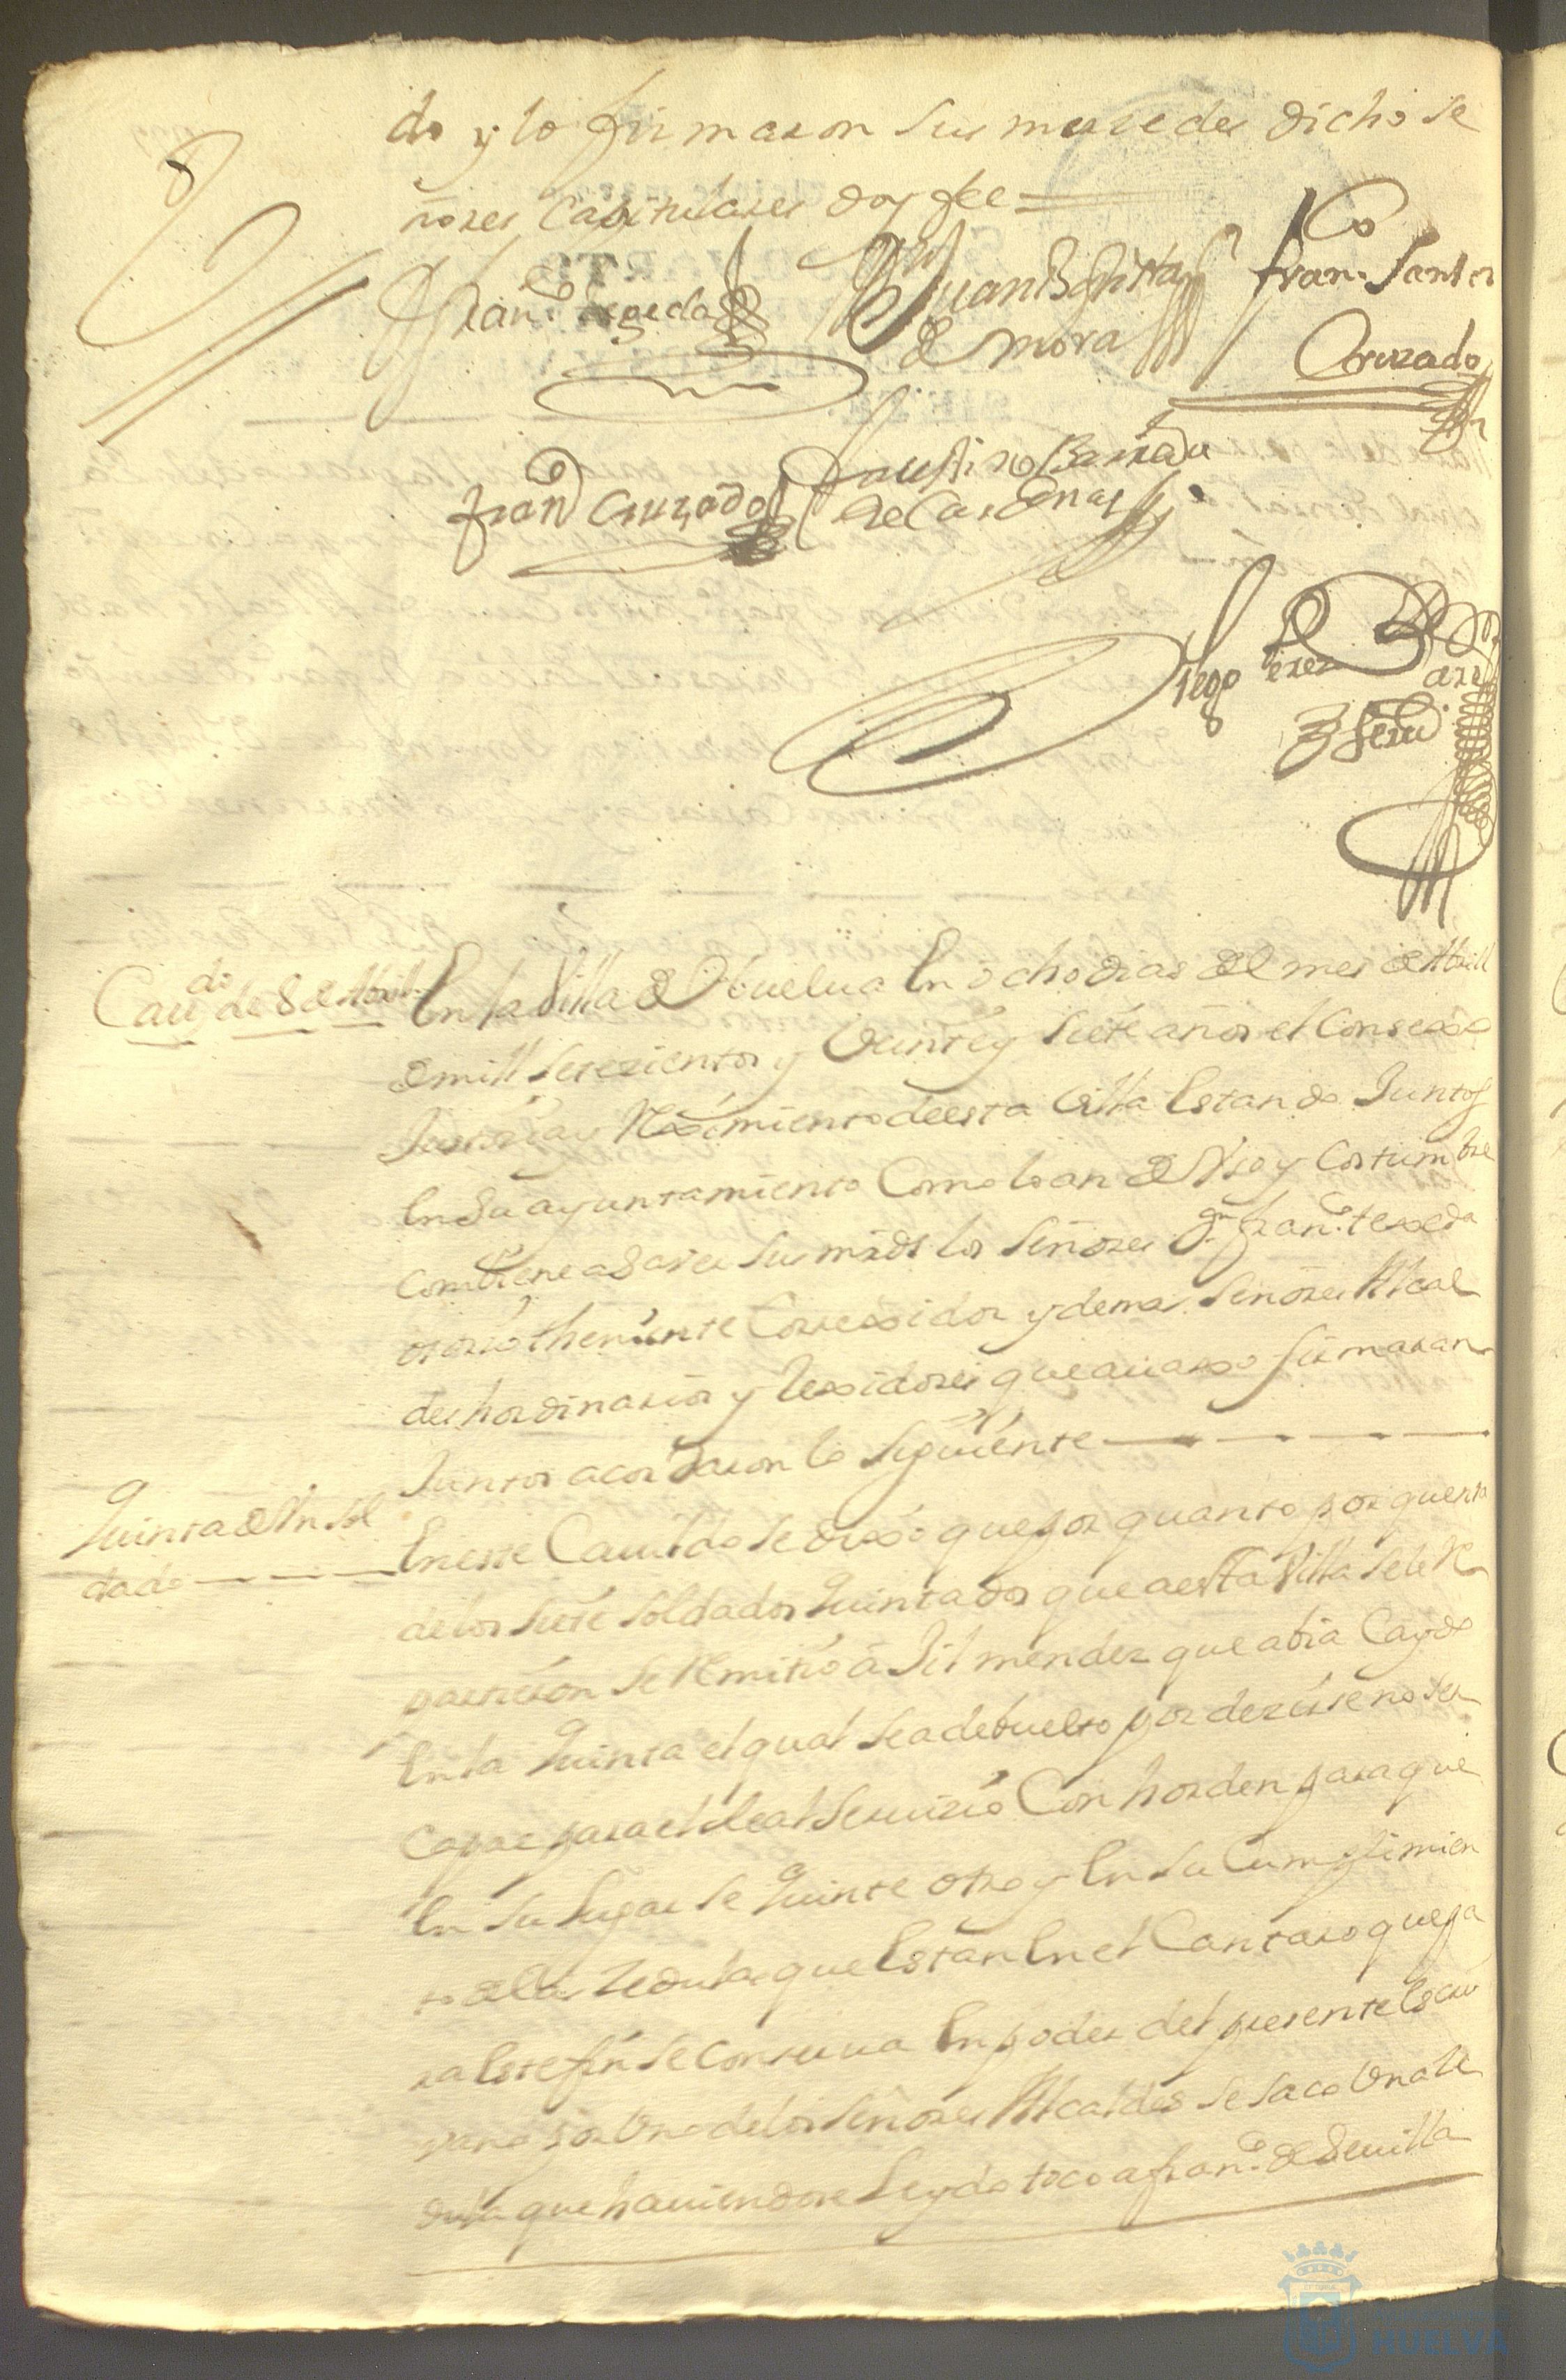 do y lo firmaron sus mersedes dicho se
ñores Capitulares doy fee =
Fran.co texeda
Juan Bautista
de mora
fran.co Santos
Cruzado
fran.co Cruzado
faustino Barrada
de Cardenas
Diego Perez
Ess.no
Cau.do de 8 de Abrill
En la Villa de Huelua En ocho dias del mes de Abrill
de mill setezientos y Veinte y siete años el Consexo
Justizia y Reximiento de esta Villa Estando Juntos
En su ayuntamiento Como lo an de Uso y Costumbre
combiene a saver sus mrds los señores Dn fran.co texeda
osorio theniente Correxidor y demas señores Alcal
des hordinarios y Rexidores que auaxo firmaran
Juntos acordaron lo siguiente
Quinta de Un sol
dado
En este Cauildo se dixo que por quanto por quenta
de los siete soldados Quintados que a esta Villa se le Re
partieron se Remitio a Jil mendez que abia Caydo
En la Quinta el qual se a debuelto por dezirse no ser
Capaz para el Real Seruizio Con horden para que
En su lugar se Quinte otro y En su Cumplimien
to de las zedulas que Estan En el Cantaro que pa
ra Este fin se conserua En poder del presente Escriu
vano por Uno de los señores Alcaldes se saco Una ze
dula que hauiendose Leydo toco a fran.co de Seuilla
HUELVA